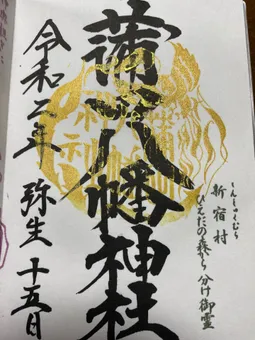 しんしゅくむら
新宿村
ひえだの森から 分け御霊
蒲田八幡神社
令和二年 弥生 十五日